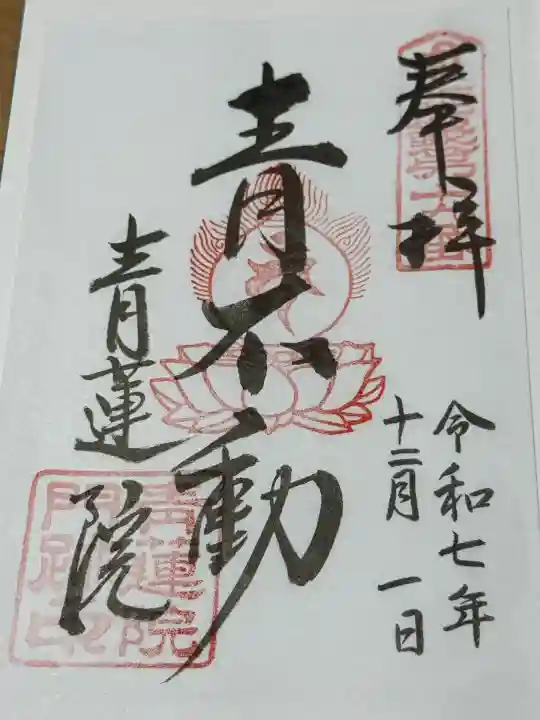 奉拝
令和七年
十二月一日
青不動
青蓮院
青蓮院
門跡印